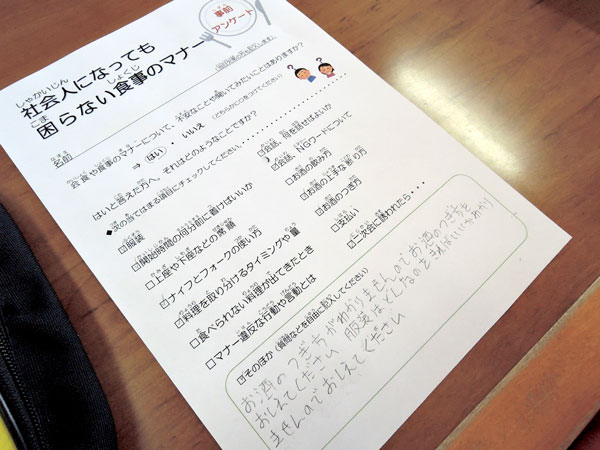 事前
アンケート
社会人になっても
しゃかいじん
困らない食事のマナー
こま しょくじ
名前
会食や食事のマナーについて、不安なことや聞いてみたいことはありますか？
⇒ はい ・ いいえ (どちらかに○をつけてください)
はいと答えた方へ、それはどのようなことですか？
◆次の当てはまる項目にチェックしてください。
服装
開始時間の何分前に着けばいいか
上座や下座などの席順
ナイフとフォークの使い方
料理を取り分けるタイミングや量
食べられない料理が出てきたとき
マナー違反な行動や言動とは
会話、何を話せばよいか
会話、NGワードについて
お酒の飲み方
お酒の上手な断り方
お酒のつぎ方
支払い
二次会に誘われたら・・・
そのほか (質問などを自由に記入してください)
お酒のつぎ方がわかりませんのでお酒のつぎ方を
おしえてください 服装はどんなのを着ればいいかわかり
ませんのでおしえてください